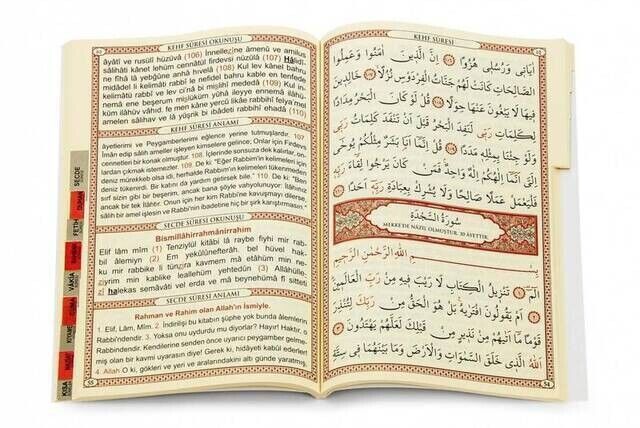 KEHF SÛRESİ OKUNUŞU
âyâtî ve rusulî hüzüvâ (106) İnnellezine âmenû ve amilus
sâlihâti kânet lehüm cennâtül firdevsi nüzülâ (107) Hâlidî-
ne fîhâ lâ yebğûne anhâ hıvelâ (108) Kul lev kânel bahru
midâdel li kelimâti rabbî le nefidel bahru kable en tenfede
kelimâtü rabbî ve lev ci'nâ bi mislihî mededâ (109) Kul in-
nemâ ene beşerum mislüküm yûhâ ileyye ennemâ ilâhü-
küm ilâhüv vâhid, fe men kâne yercû likâe rabbihî felya'mel
amelen sâlihav ve lâ yüşrik bi ibâdeti rabbihî ehadâ (110)
KEHF SÛRESİ ANLAMI
âyetlerimi ve Peygamberlerimi eğlence yerine tutmuşlardır. 107.
İman edip sâlih ameller işleyen kimselere gelince; Onlar için Firdevs
cennetleri bir konak olmuştur. 108. İçlerinde sonsuza dek kalırlar, on-
dan çıkmak istemezler. 109. De ki: "Eğer Rabbim'in kelimeleri için
deniz mürekkeb olsa idi, herhalde Rabbim'in kelimeleri tükenmeden
deniz tükenirdi. Bir katını da yardım getirsek bile." 110. De ki: "Ben
sırf sizin gibi bir beşerim, ancak bana şöyle vahyolunuyor: İlâhınız
ancak bir tek İlâhtır. Onun için her kim Rabbi'ne kavuşmayı dilerse,
sâlih bir amel işlesin ve Rabbi'nin ibadetine hiç bir şirk karıştırmasın."
SECDE SÛRESİ OKUNUŞU
Bismillâhirrahmânirrahîm
Elif lâm mîm (1) Tenzîylül kitâbi lâ raybe fîyhi mir rab-
bil âlemiyn (2) Em yekûlûnefterâh, bel hüvel hak-
ku mir rabbike li tünzira kavmem mâ etâhüm min ne-
ziyrim min kablike leallehüm yehtedûn (3) Allâhülle-
zî halekas semâvâti vel erda ve mâ beynehümâ fî sitteti
SECDE SÛRESİ ANLAMI
Rahman ve Rahim olan Allah'ın İsmiyle.
1. Elif, Lâm, Mîm. 2. İndirilişi bu kitabın şüphe yok bunda âlemlerin
Rabbi'ndendir. 3. Yoksa onu uydurdu mu diyorlar? Hayır! Haktır, o
Rabbindendir. Kendilerine senden önce uyarıcı peygamber gelme-
miş olan bir kavmi uyarasın diye! Gerek ki, hidâyeti kabûl ederler!
4. Allah O ki, gökleri ve yeri ve aralarındakini altı günde yaratmış,
SECDE
DUHAN
FETİH
VÂKIA
KIYAMET
KISA
KEHF SÛRESİ
اٰيَاتٖى وَرُسُلٖى هُزُوًا ﴿١٠٦﴾ اِنَّ الَّذٖينَ اٰمَنُوا وَعَمِلُوا
الصَّالِحَاتِ كَانَتْ لَهُمْ جَنَّاتُ الْفِرْدَوْسِ نُزُلًا ﴿١٠٧﴾ خَالِدٖينَ
فٖيهَا لَا يَبْغُونَ عَنْهَا حِوَلًا ﴿١٠٨﴾ قُلْ لَوْ كَانَ الْبَحْرُ مِدَادًا
لِكَلِمَاتِ رَبّٖى لَنَفِدَ الْبَحْرُ قَبْلَ اَنْ تَنْفَدَ كَلِمَاتُ رَبّٖى
وَلَوْ جِئْنَا بِمِثْلِهٖ مَدَدًا ﴿١٠٩﴾ قُلْ اِنَّمَا اَنَا بَشَرٌ مِثْلُكُمْ يُوحٰى
اِلَىَّ اَنَّمَا اِلٰهُكُمْ اِلٰهٌ وَاحِدٌ فَمَنْ كَانَ يَرْجُوا لِقَاءَ رَبِّهٖ
فَلْيَعْمَلْ عَمَلًا صَالِحًا وَلَا يُشْرِكْ بِعِبَادَةِ رَبِّهٖ اَحَدًا ﴿١١٠﴾
سُورَةُ السَّجْدَةِ
MEKKE'DE NÂZİL OLMUŞTUR. 30 ÂYETTİR.
بِسْمِ اللّٰهِ الرَّحْمٰنِ الرَّحٖيمِ
الٓمٓ ﴿١﴾ تَنْزٖيلُ الْكِتَابِ لَا رَيْبَ فٖيهِ مِنْ رَبِّ الْعَالَمٖينَ
﴿٢﴾ اَمْ يَقُولُونَ افْتَرٰيهُ بَلْ هُوَ الْحَقُّ مِنْ رَبِّكَ لِتُنْذِرَ
قَوْمًا مَا اَتٰيهُمْ مِنْ نَذٖيرٍ مِنْ قَبْلِكَ لَعَلَّهُمْ يَهْتَدُونَ ﴿٣﴾
اَللّٰهُ الَّذٖى خَلَقَ السَّمٰوَاتِ وَالْاَرْضَ وَمَا بَيْنَهُمَا فٖى سِتَّةِ
55
54